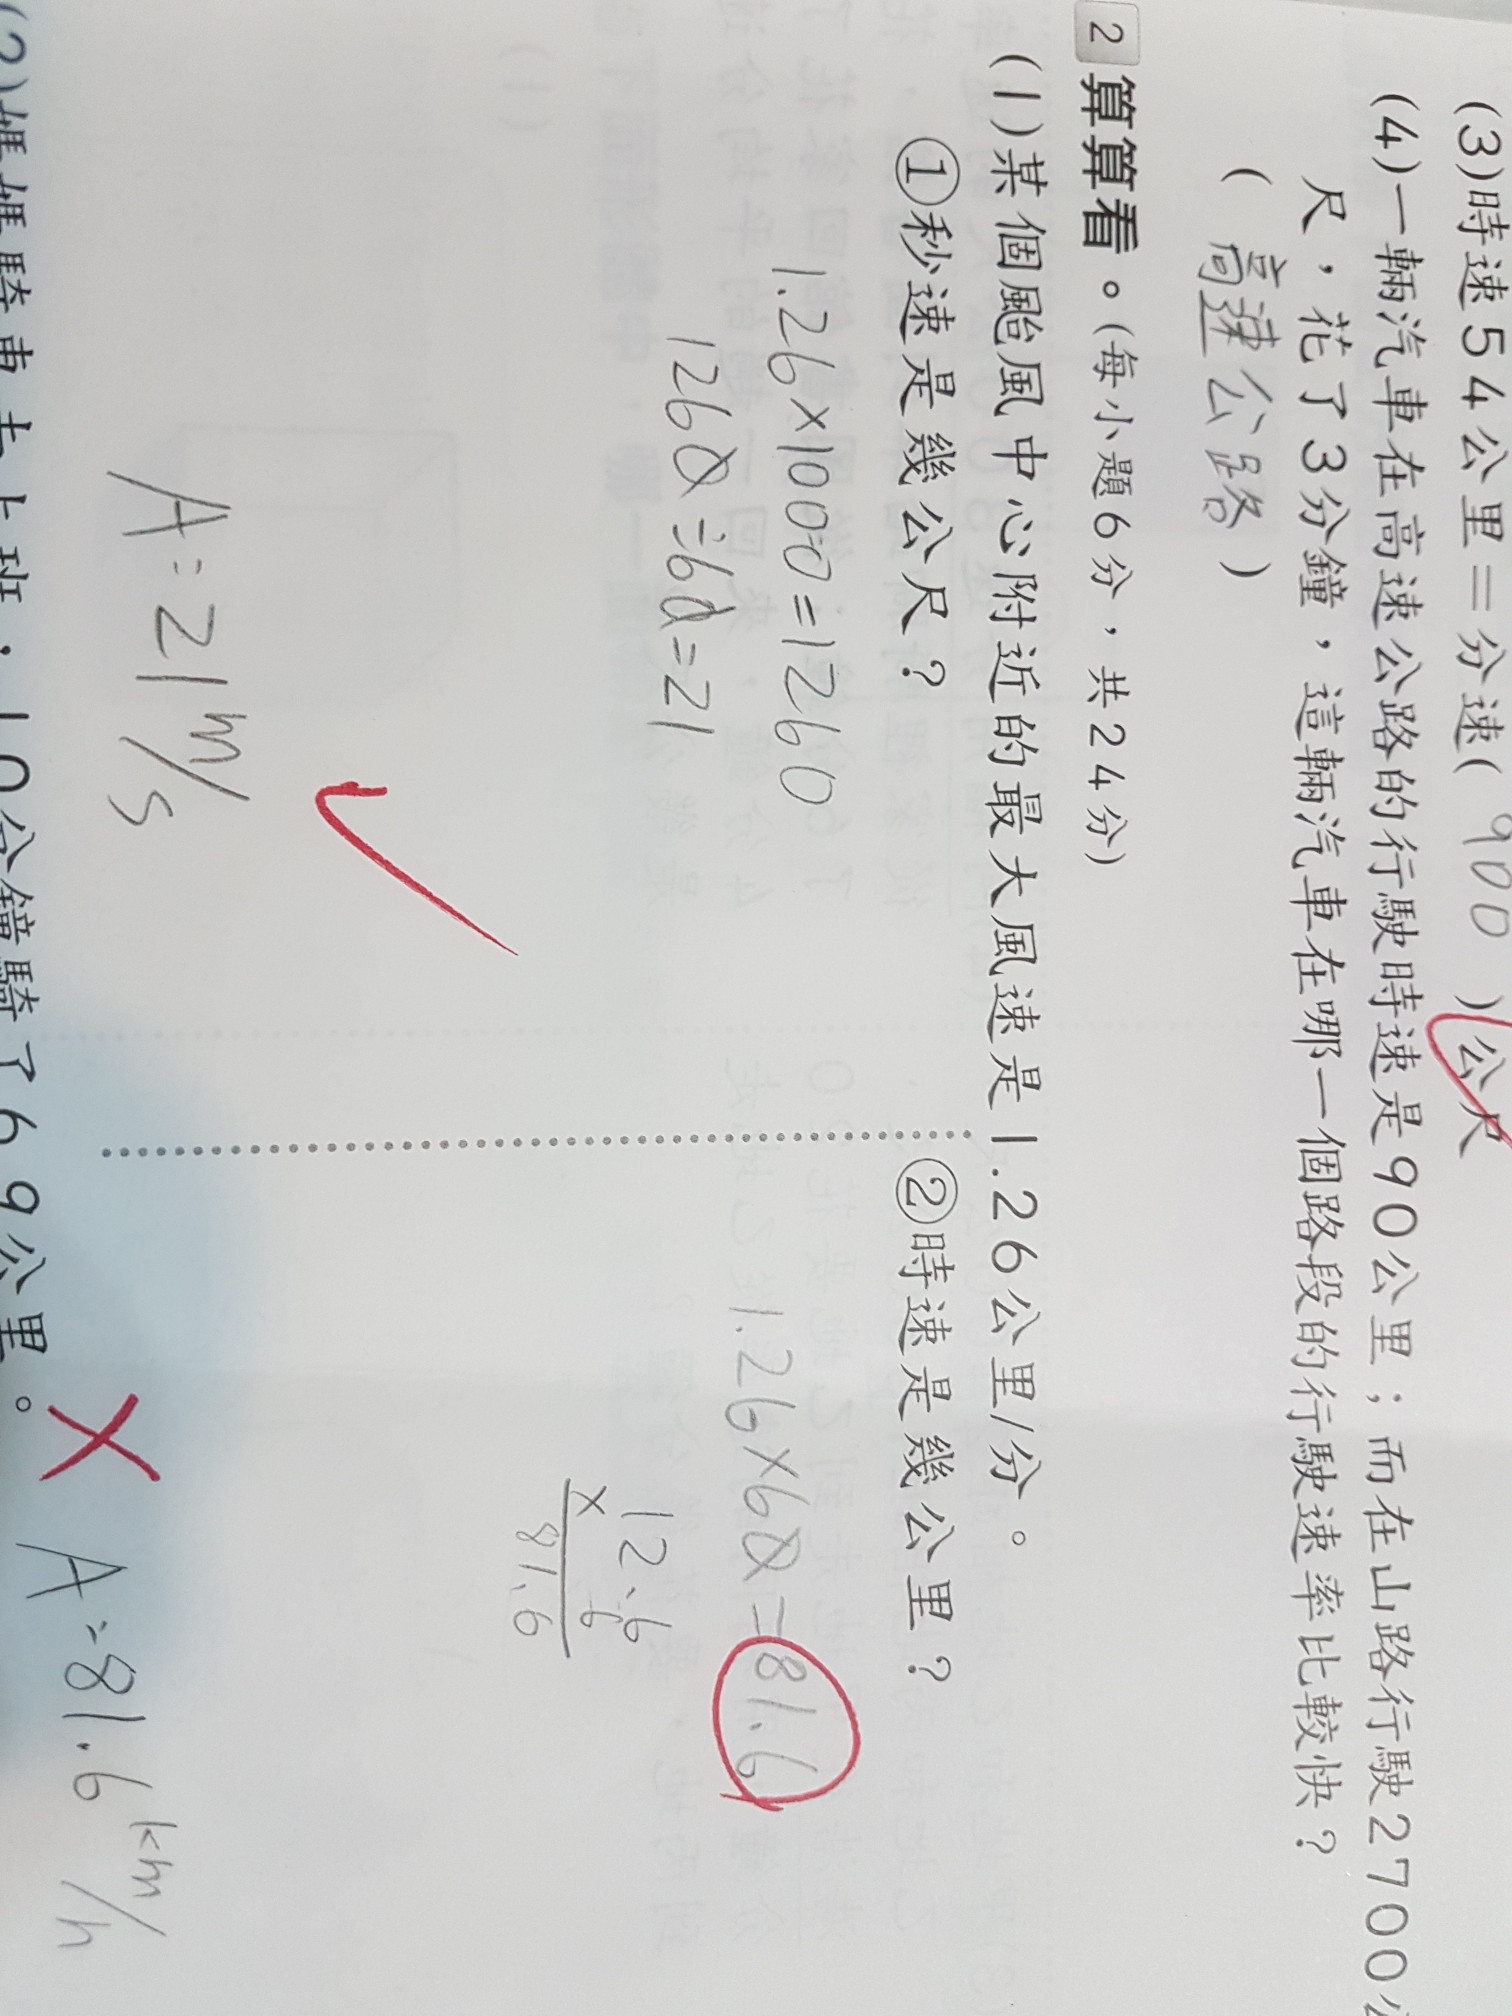 (3)時速54公里=分速( 900 )公尺
(4)一輛汽車在高速公路的行駛時速是90公里;而在山路行駛2700
尺,花了3分鐘,這輛汽車在哪一個路段的行駛速率比較快?
( 高速公路 )
2 算算看。(每小題6分,共24分)
(1)某個颱風中心附近的最大風速是1.26公里/分。
①秒速是幾公尺?
1.26×1000=1260
1260÷60=21
A:21m/s
②時速是幾公里?
1.26×60=81.6
12.6
× 6
81.6
A:81.6km/h
(2)媽媽騎車去上班,10分鐘騎了6.9公里。